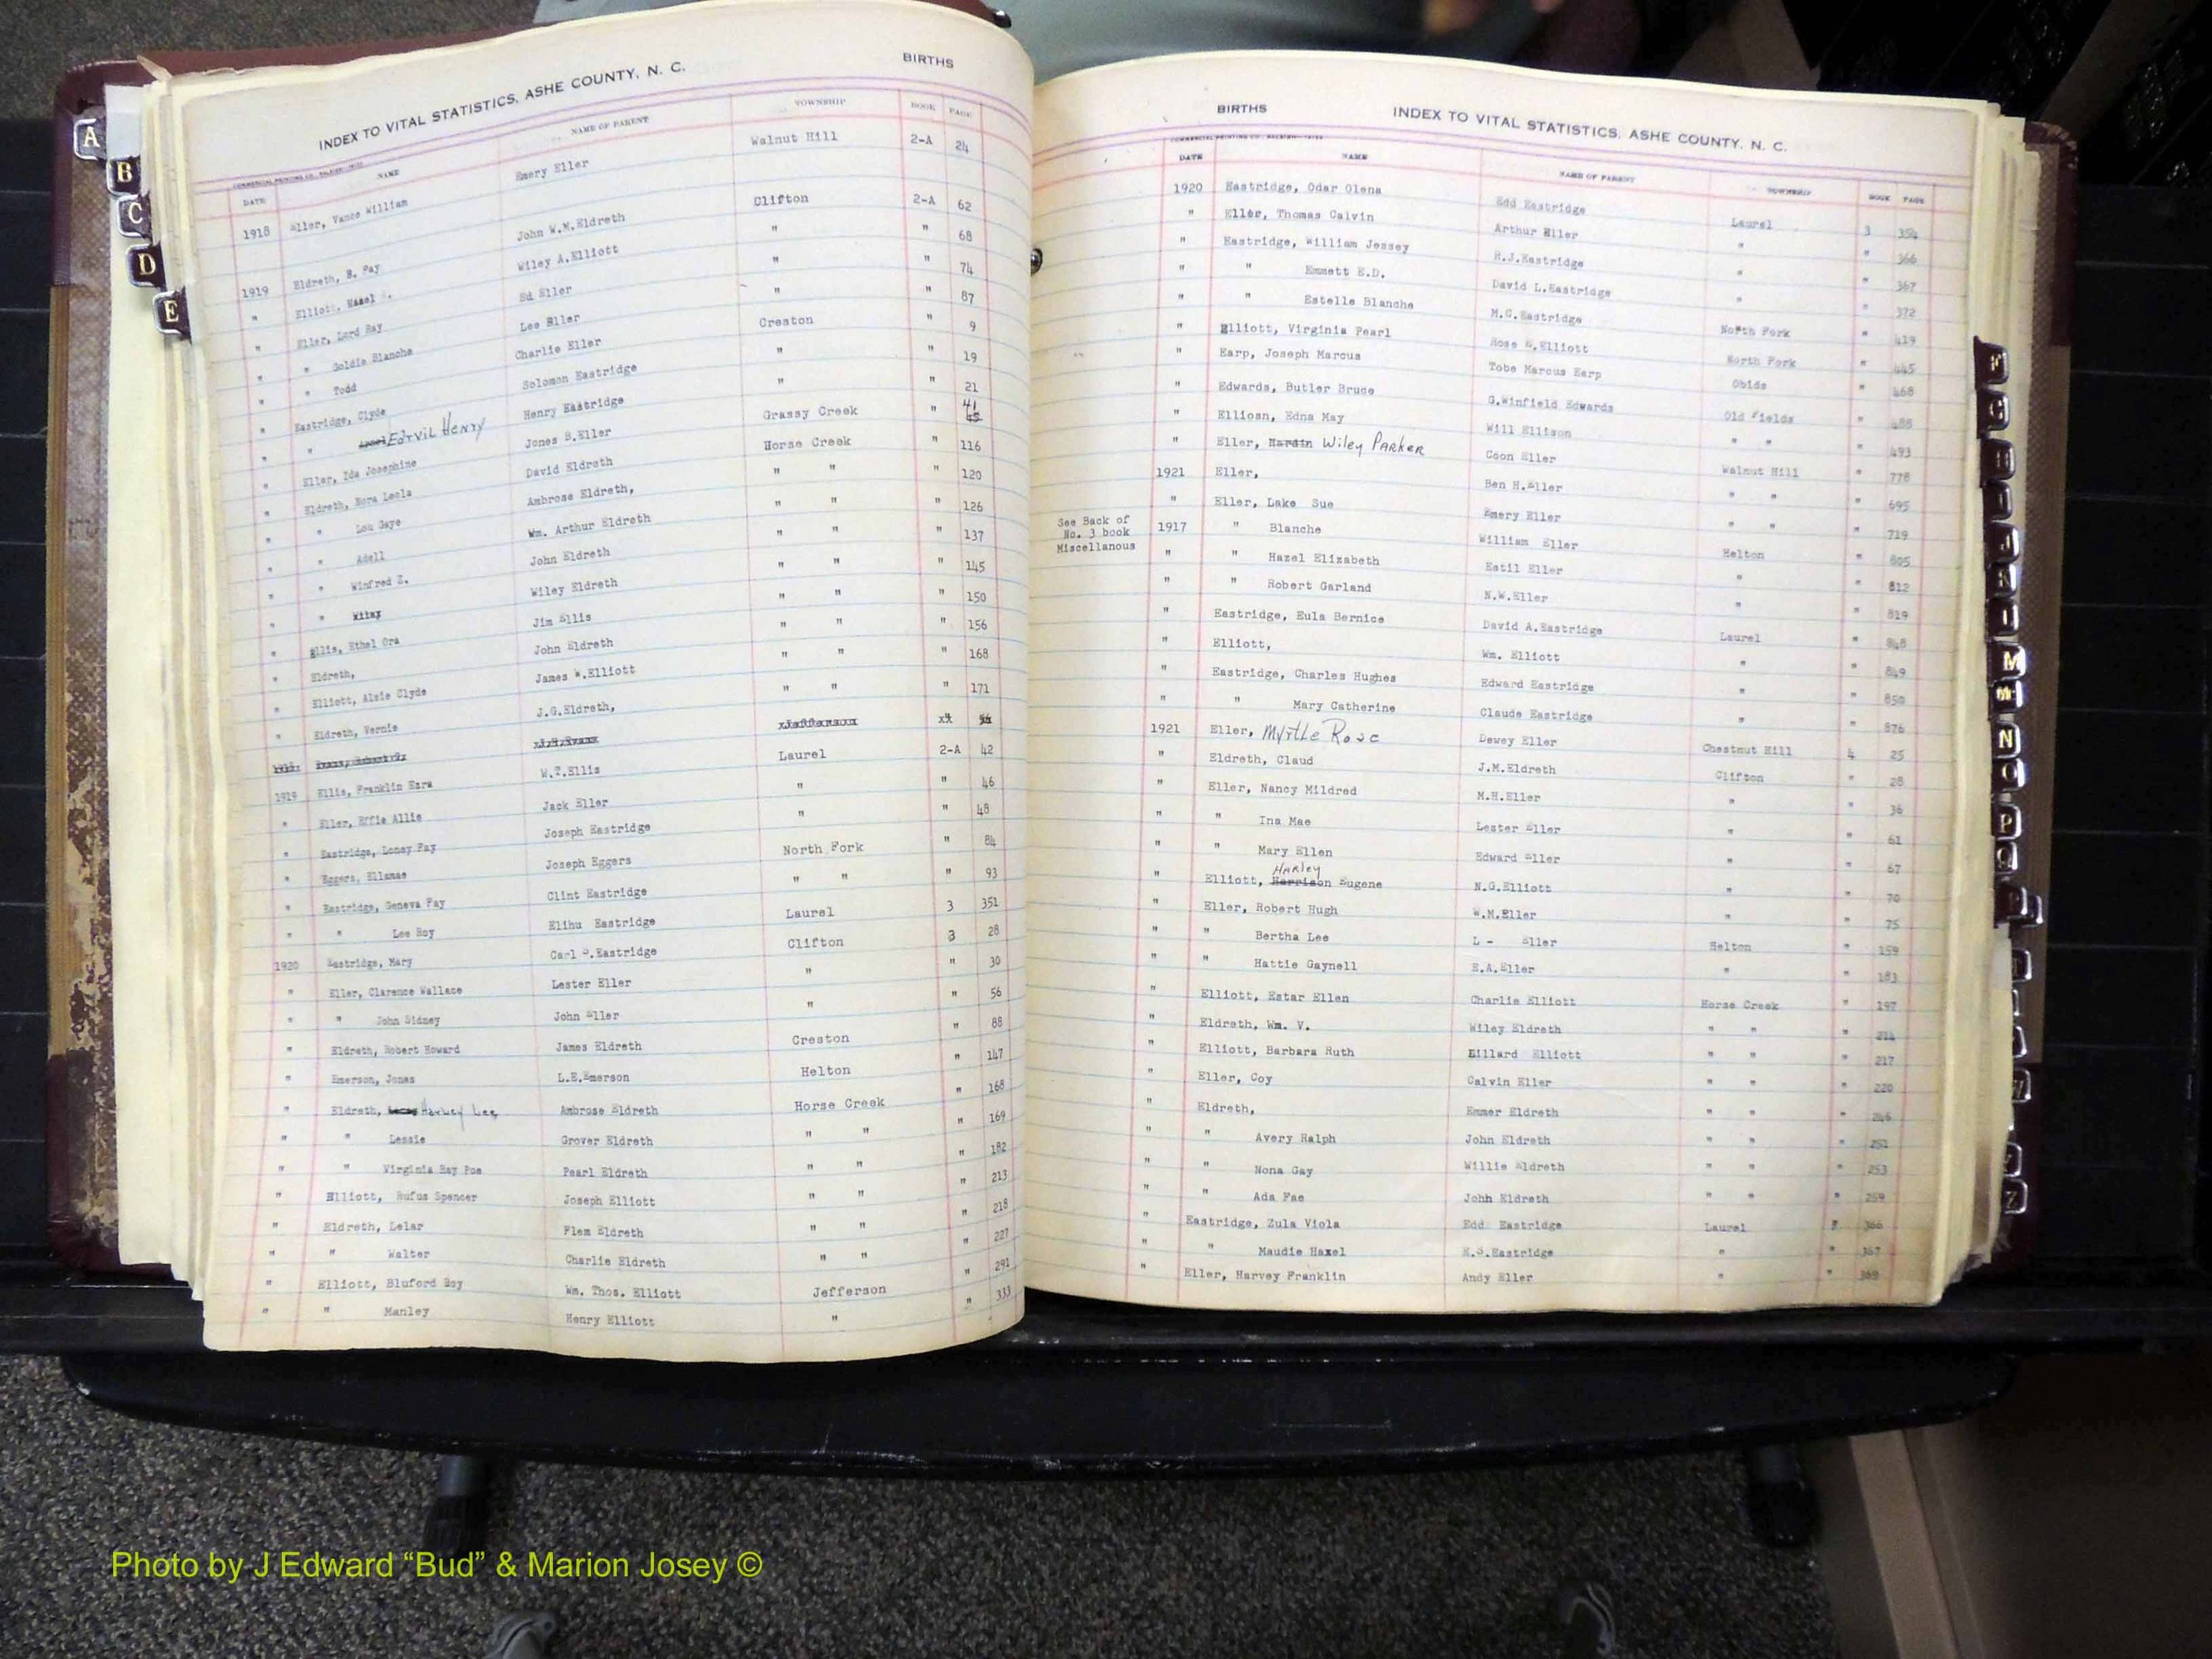 INDEX TO VITAL STATISTICS, ASHE COUNTY, N. C. BIRTHS
DATE NAME NAME OF PARENT TOWNSHIP BOOK PAGE
1918 Eller, Vance William Emery Eller Walnut Hill 2-A 24
1919 Eldreth, B. Fay John W.M.Eldreth Clifton 2-A 62
" Elliott, Hazel Wiley A.Elliott " " 68
" Eller, Lord Ray Ed Eller " " 74
" " Goldie Blanche Lee Eller " " 87
" " Todd Charlie Eller Creston " 9
" Eastridge, Clyde Solomon Eastridge " " 19
" " Edrvil Henry Henry Eastridge " " 21
" Eller, Ida Josephine Jones B.Eller Grassy Creek " 41 45
" Eldreth, Nora Leola David Eldreth Horse Creek " 116
" " Lou Gaye Ambrose Eldreth, " " " 120
" " Adell Wm. Arthur Eldreth " " " 126
" " Winfred Z. John Eldreth " " " 137
" " Wiley Eldreth " " " 145
" Ellis, Ethel Ora Jim Ellis " " " 150
" Eldreth, John Eldreth " " " 156
" Elliott, Alsie Clyde James W.Elliott " " " 168
" Eldreth, Vernie J.G.Eldreth, " " " 171
1919 Ellis, Franklin Ezra W.T.Ellis Laurel 2-A 42
" Eller, Effie Allie Jack Eller " " 46
" Eastridge, Loney Fay Joseph Eastridge " " 48
" Eggers, Ellamae Joseph Eggers North Fork " 84
" Eastridge, Geneva Fay Clint Eastridge " " " 93
" " Lee Roy Elihu Eastridge Laurel 3 351
1920 Eastridge, Mary Carl S.Eastridge Clifton 3 28
" Eller, Clarence Wallace Lester Eller " " 30
" " John Sidney John Eller " " 56
" Eldreth, Robert Howard James Eldreth Creston " 88
" Emerson, Jonas L.E.Emerson Helton " 147
" Eldreth, Harley Lee Ambrose Eldreth Horse Creek " 168
" " Lessie Grover Eldreth " " " 169
" " Virginia Ray Poe Pearl Eldreth " " " 182
" Elliott, Rufus Spencer Joseph Elliott " " " 213
" Eldreth, Lelar Flem Eldreth " " " 218
" " Walter Charlie Eldreth " " " 227
" Elliott, Bluford Roy Wm. Thos. Elliott Jefferson " 291
" " Manley Henry Elliott " " 333
BIRTHS INDEX TO VITAL STATISTICS, ASHE COUNTY, N. C.
DATE NAME NAME OF PARENT TOWNSHIP BOOK PAGE
1920 Eastridge, Odar Olena Edd Eastridge Laurel 3 354
" Eller, Thomas Calvin Arthur Eller " " 366
" Eastridge, William Jessey R.J.Eastridge " " 367
" " Emmett E.D. David L.Eastridge " " 372
" " Estelle Blanche M.C.Eastridge North Fork " 419
" Elliott, Virginia Pearl Rose B.Elliott North Fork " 445
" Earp, Joseph Marcus Tobe Marcus Earp Obids " 468
" Edwards, Butler Bruce G.Winfield Edwards Old Fields " 488
" Elliosn, Edna May Will Ellison " " " 493
" Eller, Hardin Wiley Parker Coon Eller Walnut Hill " 778
1921 Eller, Ben H.Eller " " " 695
" Eller, Lake Sue Emery Eller " " " 719
See Back of
No. 3 book
Miscellanous
1917 " Blanche William Eller Helton " 805
" " Hazel Elizabeth Estil Eller " " 812
" " Robert Garland N.W.Eller " " 819
" Eastridge, Eula Bernice David A.Eastridge Laurel " 848
" Elliott, Wm. Elliott " " 849
" Eastridge, Charles Hughes Edward Eastridge " " 850
" " Mary Catherine Claude Eastridge " " 876
1921 Eller, Myrtle Rose Dewey Eller Chestnut Hill 4 25
" Eldreth, Claud J.M.Eldreth Clifton " 28
" Eller, Nancy Mildred M.H.Eller " " 36
" " Ina Mae Lester Eller " " 61
" " Mary Ellen Edward Eller " " 67
" Elliott, Harrison Harley Eugene N.G.Elliott " " 70
" Eller, Robert Hugh W.M.Eller " " 75
" " Bertha Lee L - Eller Helton " 159
" " Hattie Gaynell E.A.Eller " " 183
" Elliott, Estar Ellen Charlie Elliott Horse Creek " 197
" Eldreth, Wm. V. Wiley Eldreth " " " 214
" Elliott, Barbara Ruth Lillard Elliott " " " 217
" Eller, Coy Calvin Eller " " " 220
" Eldreth, Emmer Eldreth " " " 246
" " Avery Ralph John Eldreth " " " 251
" " Nona Gay Willie Eldreth " " " 253
" " Ada Fae John Eldreth " " " 259
" Eastridge, Zula Viola Edd Eastridge Laurel " 366
" " Maudie Haxel R.S.Eastridge " " 367
" Eller, Harvey Franklin Andy Eller " " 369
A
B
C
D
E
F
G
H
M
Mc
N
O
P
Q
Z
Photo by J Edward “Bud” & Marion Josey ©